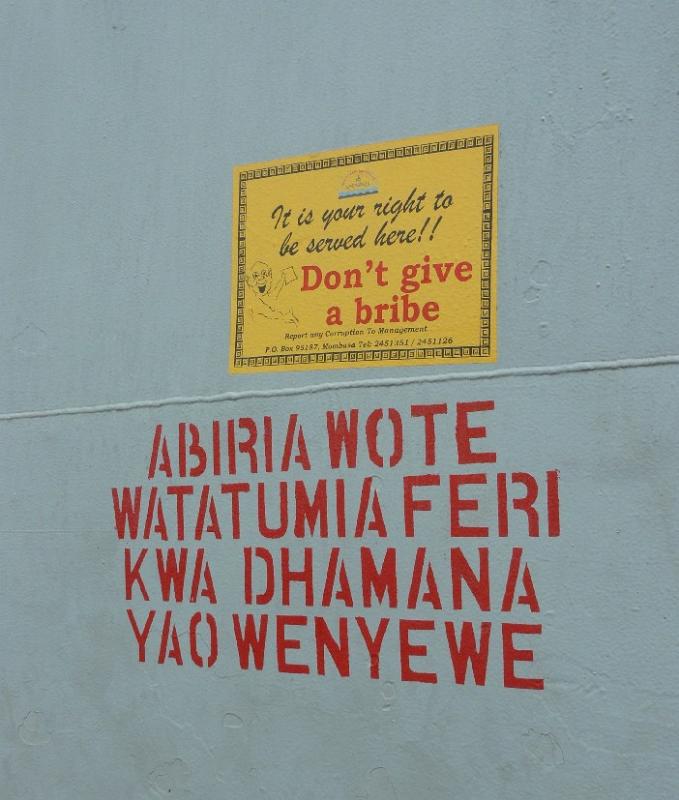 It is your right to
be served here!!
Don't give
a bribe
Report any Corruption To Management
P.O. Box 95187, Mombasa Tel: 2451351 / 2451126
ABIRIA WOTE
WATATUMIA FERI
KWA DHAMANA
YAO WENYEWE